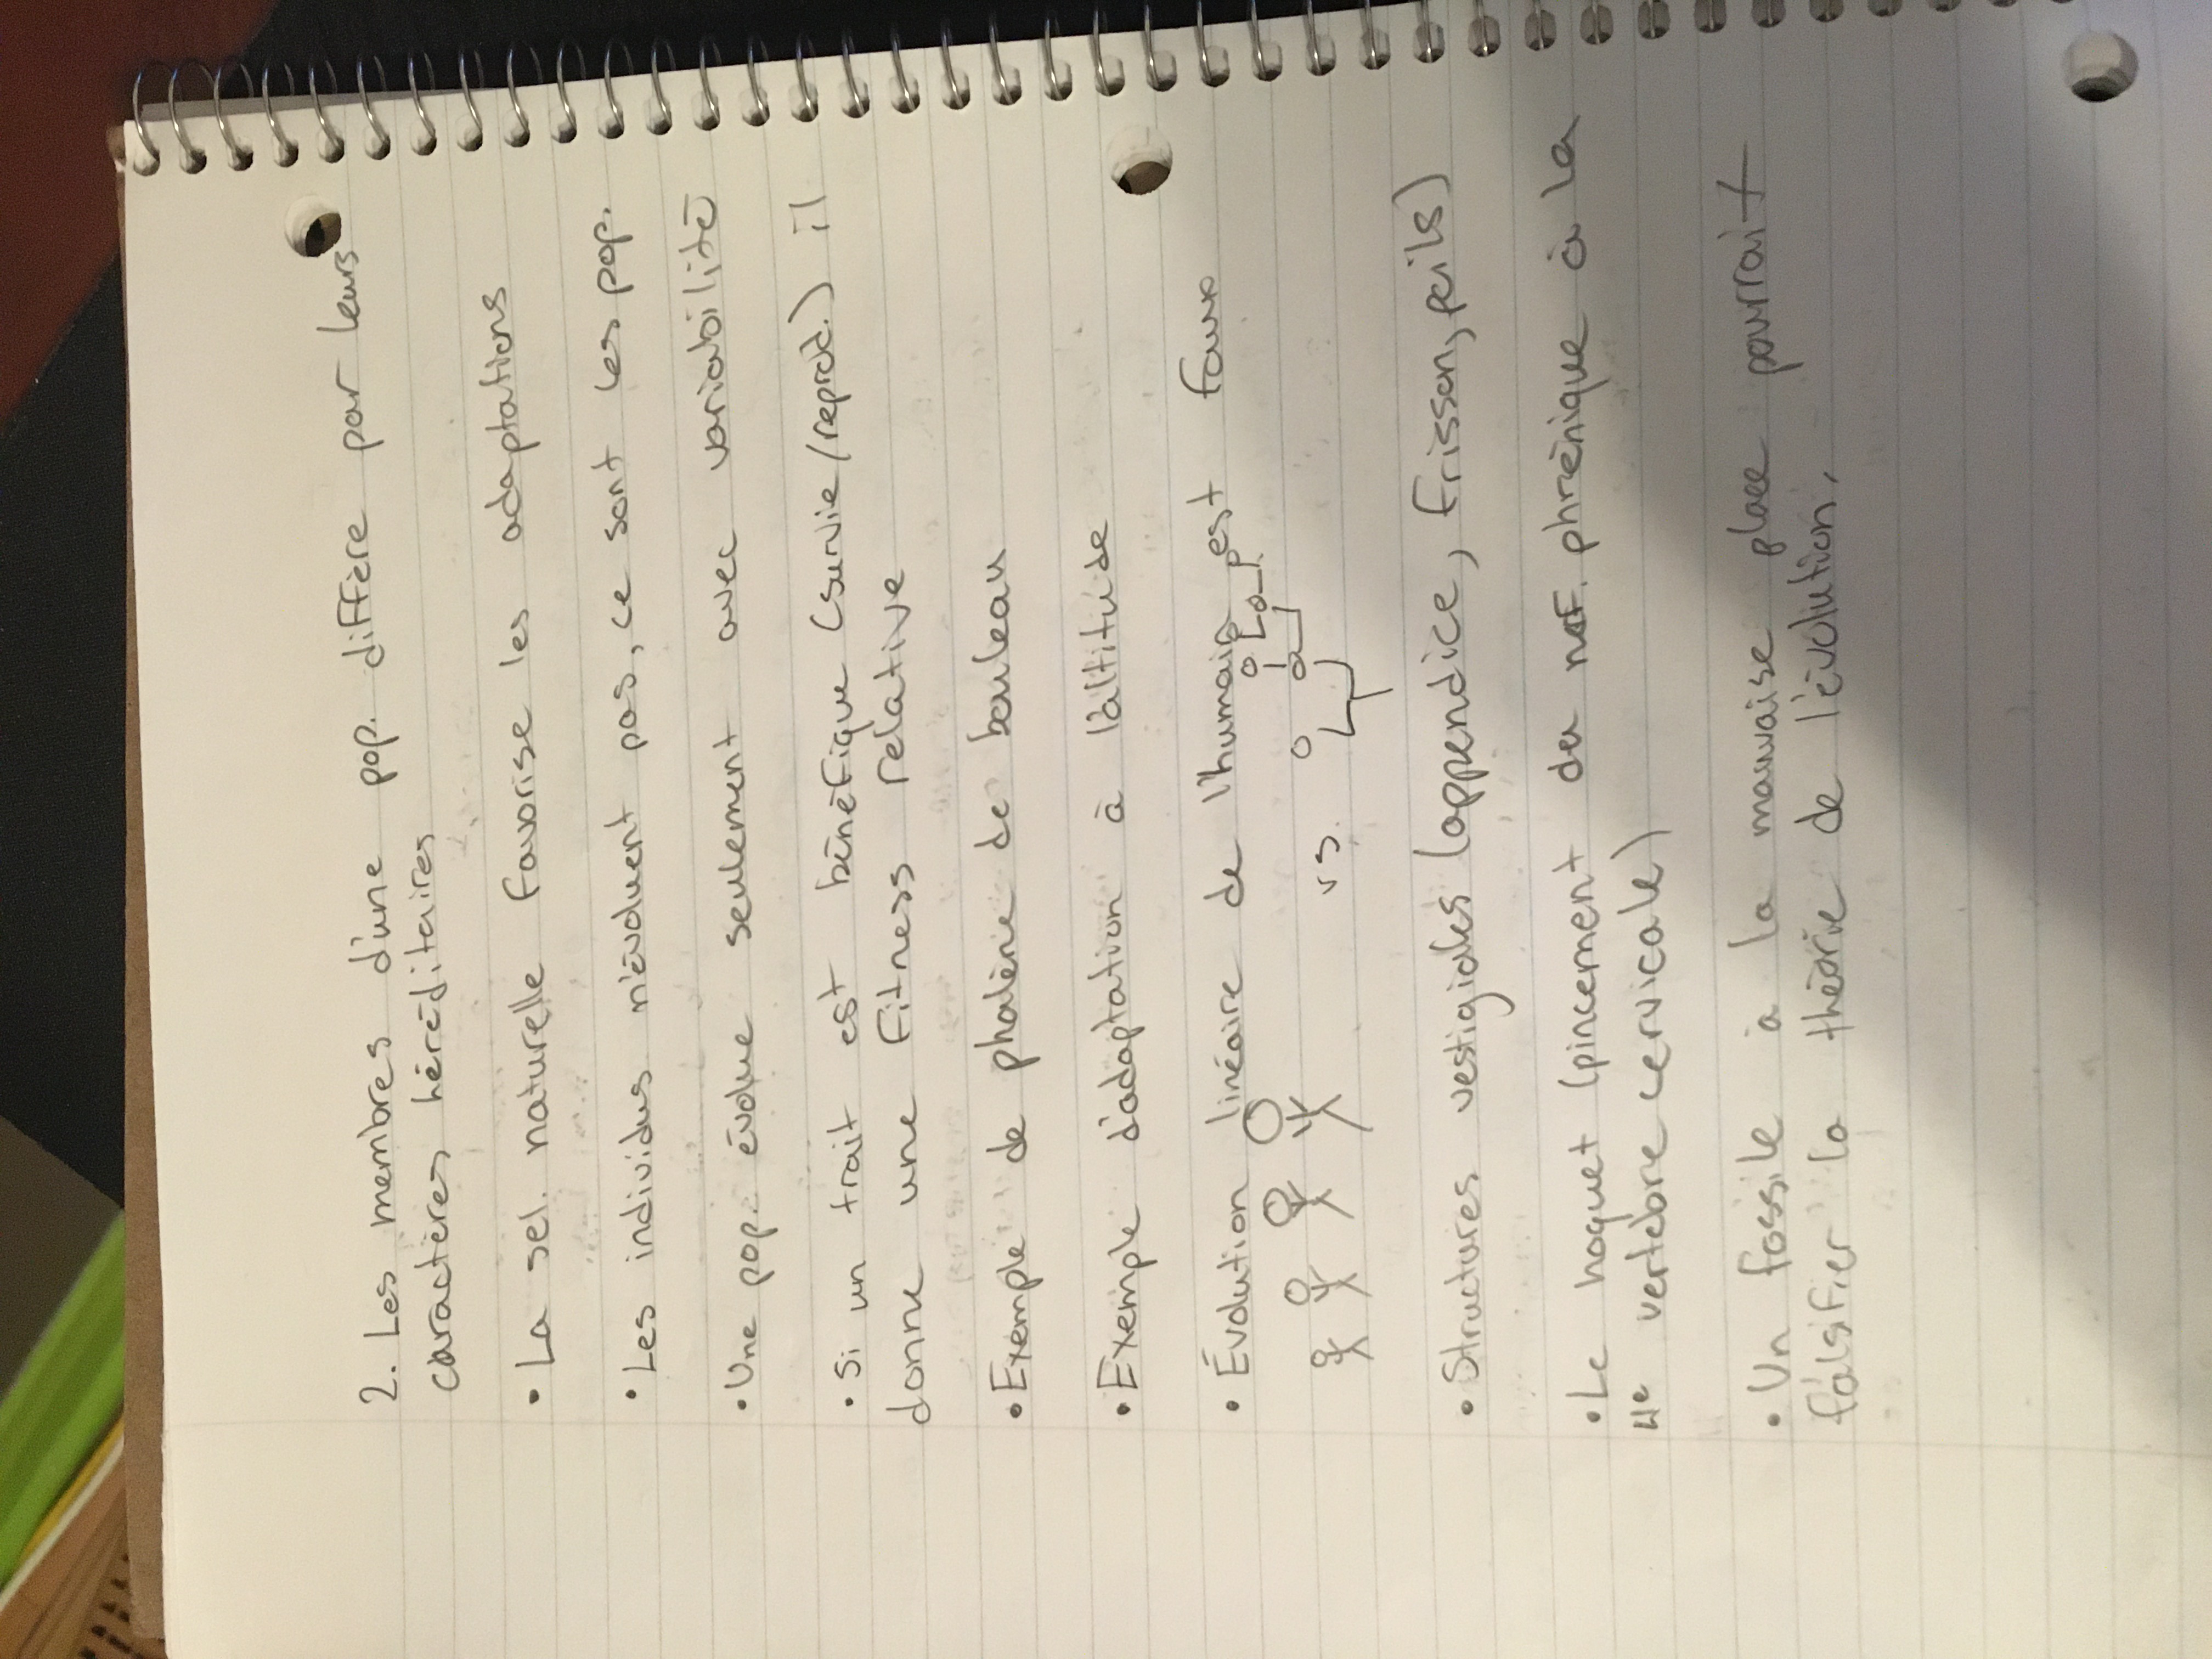 2. Les membres d'une pop. diffère par leurs
caractères héréditaires
• La sel. naturelle favorise les adaptations
• Les individus n'évoluent pas, ce sont les pop.
• Une pop. évolue seulement avec variabilité
• Si un trait est bénéfique (survie/reprod.) il
donne une fitness relative
• Exemple de phalène de bouleau
• Exemple d'adaptation à l'altitude
• Évolution linéaire de l'humain est faux
vs.
• Structures vestigiales (appendice, frisson, poils)
• Le hoquet (pincement du nerf. phrénique à la
4e vertèbre cervicale)
• Un fossile à la mauvaise place pourrait
falsifier la théorie de l'évolution.